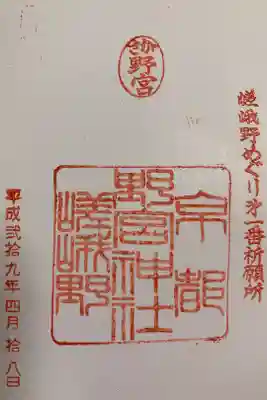 さが野宮
嵯峨野めぐり第一番祈願所
京都
野宮神社
嵯峨野
平成弐拾九年四月拾八日